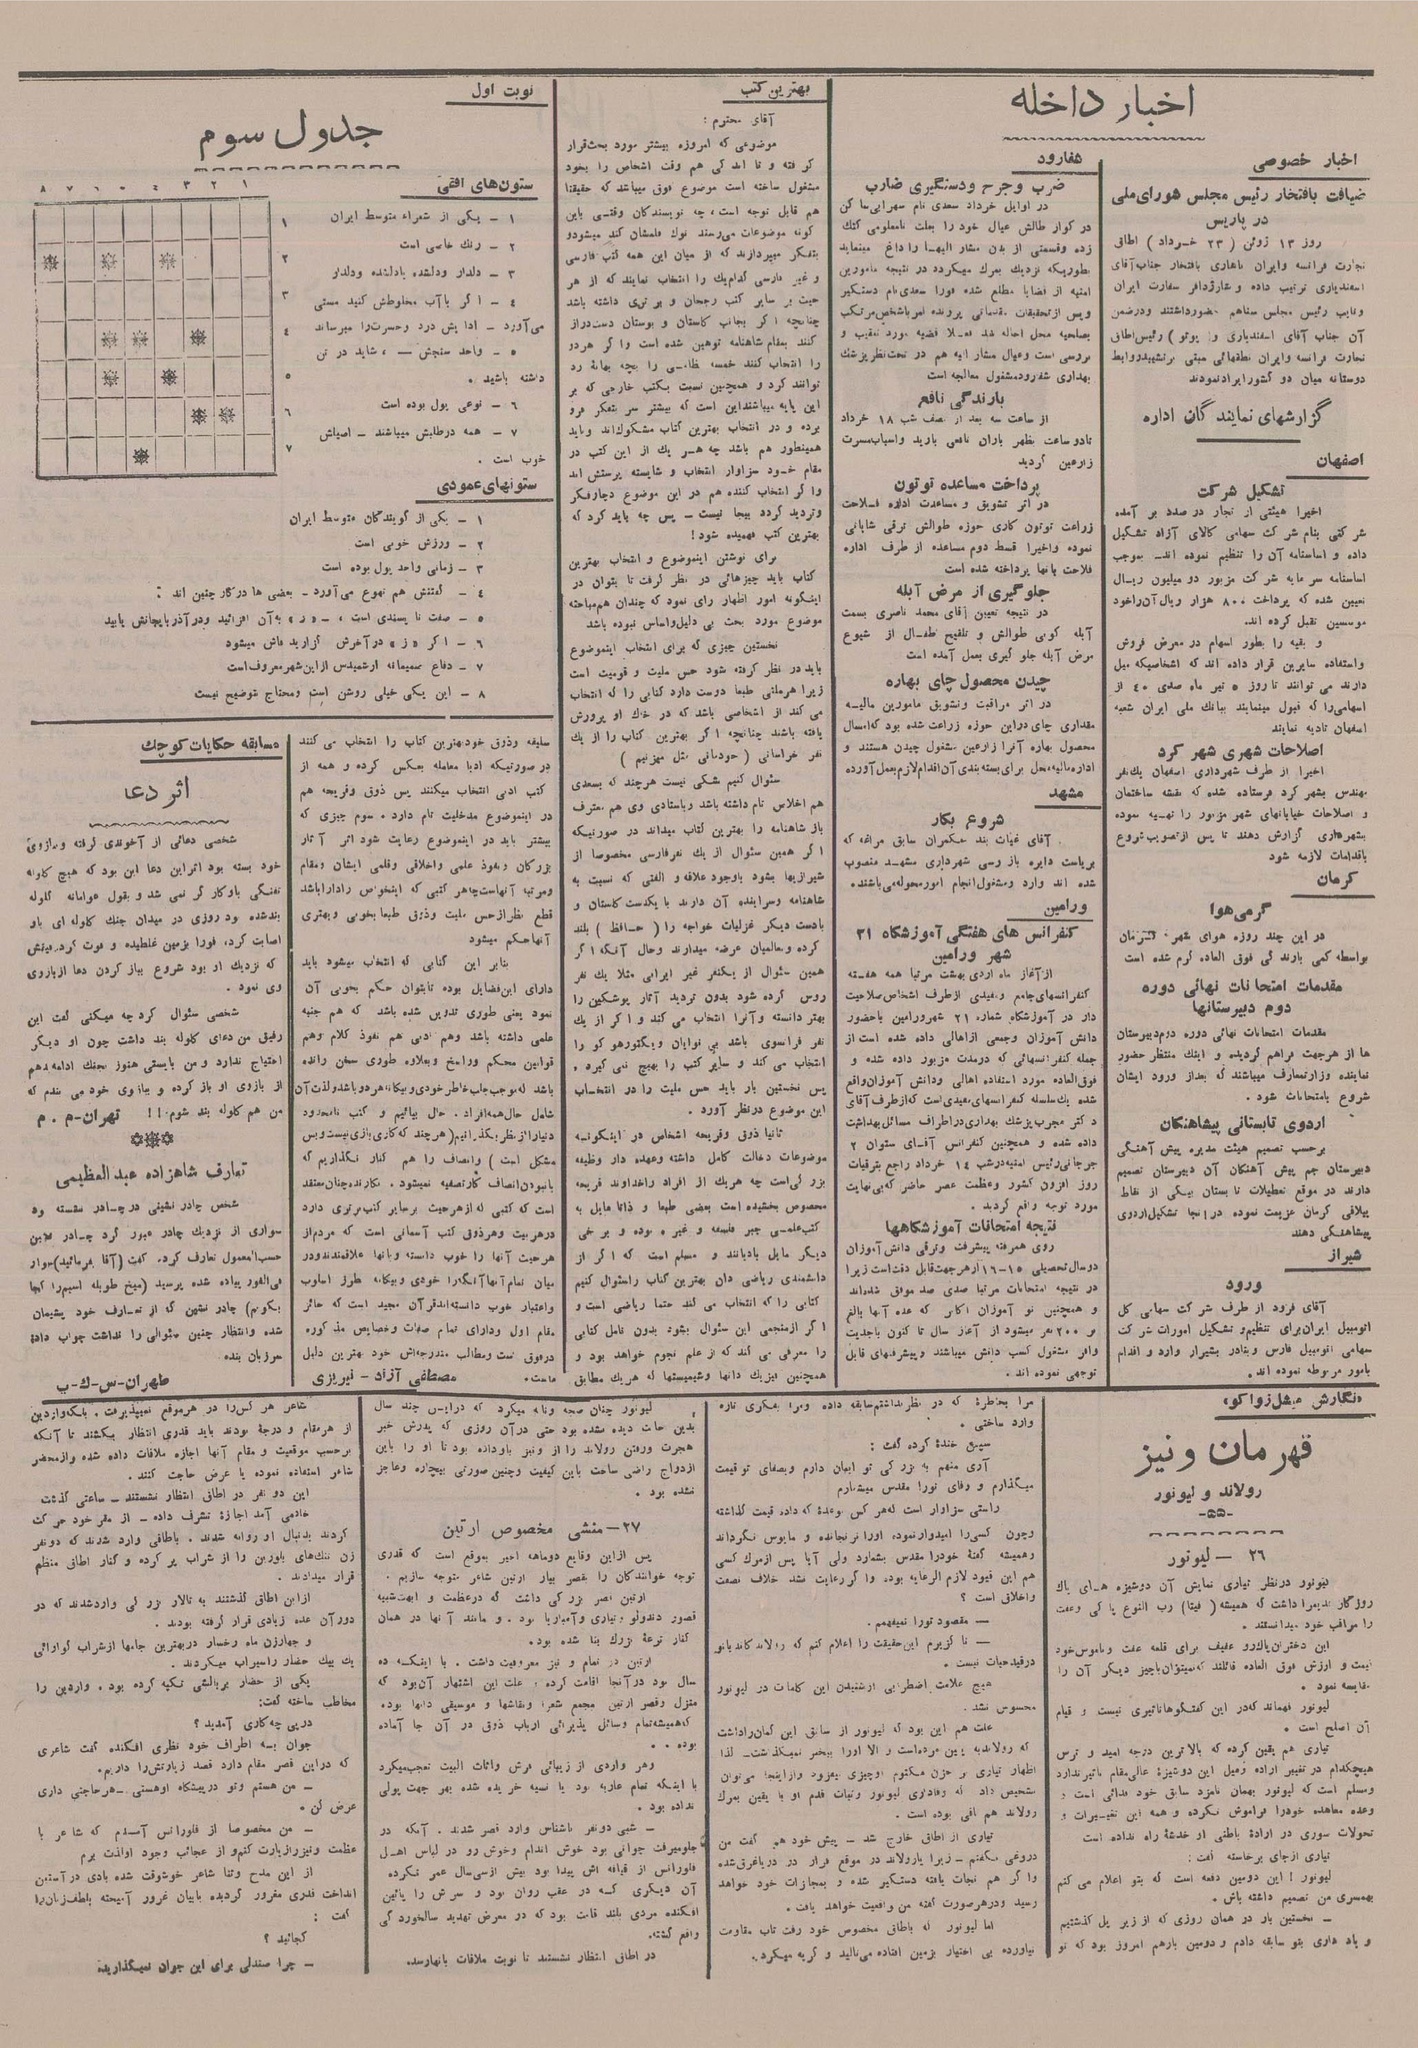 اخبار داخله
اخبار خصوصی
ضیافت بافتخار رئیس مجلس شورای ملی
در پاریس
روز ۱۳ ژوئن (۲۳ خرداد) اطاق
تجارت فرانسه وایران ناهاری بافتخار جناب آقای
اسفندیاری ترتیب داده و شارژدافر سفارت ایران
ونایب رئیس مجلس سناهم حضورداشتند ودرضمن
آن جناب آقای اسفندیاری و( پوتو ) رئیس اطاق
تجارت فرانسه وایران نطقهائی مبنی برتشییدروابط
دوستانه میان دو کشور ایراد نمودند
گزارشهای نمایندگان اداره
اصفهان
تشکیل شرکت
اخیرا هیئتی از تجار در صدد بر آمده
شرکتی بنام شرکت سهامی کالای آزاد تشکیل
داده و اساسنامه آن را تنظیم نموده اند- بموجب
اساسنامه سرمایه شرکت مزبور دو میلیون ریال
تعیین شده که پرداخت ۸۰۰ هزار ریال آن راخود
موسسین تقبل کرده اند.
و بقیه را بطور اسهام در معرض فروش
واستفاده سایرین قرار داده اند که اشخاصیکه میل
دارند می توانند تا روز ۵ تیر ماه صدی ۴۰ از
اسهامی را که قبول مینمایند ببانک ملی ایران شعبه
اصفهان تادیه نمایند
اصلاحات شهری شهر کرد
اخیرا از طرف شهرداری اصفهان یکنفر
مهندس بشهر کرد فرستاده شده که نقشه ساختمان
و اصلاحات خیابانهای شهر مزبور را تهیه نموده
بشهرداری گزارش دهند تا پس از تصویب شروع
باقدامات لازمه شود
کرمان
گرمی هوا
در این چند روزه هوای شهر کرمان
بواسطه کمی بارندگی فوق العاده گرم شده است
مقدمات امتحانات نهائی دوره
دوم دبیرستانها
مقدمات امتحانات نهائی دوره دوم دبیرستان
ها از هرجهت فراهم گردیده و اینک منتظر حضور
نماینده وزارتمعارف میباشند که بعداز ورود ایشان
شروع بامتحانات شود .
اردوی تابستانی پیشاهنگان
برحسب تصمیم هیئت مدیره پیش آهنگی
دبیرستان جم پیش آهنگان آن دبیرستان تصمیم
دارند در موقع تعطیلات تابستان بیکی از نقاط
ییلاقی کرمان عزیمت نموده درآنجا تشکیل اردوی
پیشاهنگی دهند
شیراز
ورود
آقای فرود از طرف شرکت سهامی کل
اتومبیل ایران برای تنظیم و تشکیل امورات شرکت
سهامی اتومبیل فارس وبنادر بشیراز وارد و اقدام
بامور مربوطه نموده اند .
شفارود
ضرب وجرح ودستگیری ضارب
در اوایل خرداد سعدی نام سهرابی ساکن
در کوار طالش عیال خود را بعلت نامعلومی کتک
زده وقسمتی از بدن مشار الیها را داغ مینماید
بطوریکه نزدیک بمرگ میگردد در نتیجه مامورین
امنیه از قضایا مطلع شده فورا سعدی نام دستگیر
وپس ازتحقیقات مقدماتی پرونده امر باشخص مرتکب
بصلحیه محل احاله شد فعلا قضیه مورد تعقیب و
بررسی است وعیال مشار الیه هم در تحت نظر پزشک
بهداری شفارودمشغول معالجه است
بارندگی نافع
از ساعت سه بعد از نصف شب ۱۸ خرداد
تادوساعت بظهر باران نافعی بارید واسباب مسرت
زارعین گردید
پرداخت مساعده توتون
در اثر تشویق و مساعدت اداره فلاحت
زراعت توتون کاری حوزه طوالش ترقی شایانی
نموده واخیرا قسط دوم مساعده از طرف اداره
فلاحت بانها پرداخته شده است
جلوگیری از مرض آبله
در نتیجه تعیین آقای محمد ناصری بسمت
آبله کوبی طوالش و تلقیح اطفال از شیوع
مرض آبله جلو گیری بعمل آمده است
چیدن محصول چای بهاره
در اثر مراقبت وتشویق مامورین مالیه
مقداری چای دراین حوزه زراعت شده بود که امسال
محصول بهاره آنرا زارعین مشغول چیدن هستند و
اداره مالیه محل برای بسته بندی آن اقدام لازم بعمل آورده
مشهد
شروع بکار
آقای غیاث بند حکمران سابق مراغه که
بریاست دایره بازرسی شهرداری مشهد منصوب
شده اند وارد ومشغول انجام امور محوله می باشند.
ورامین
کنفرانس های هفتگی آموزشگاه ۲۱
شهر ورامین
از آغاز ماه اردی بهشت مرتبا همه هفته
کنفرانسهای جامع ومفیدی ازطرف اشخاص صلاحیت
دار در آموزشگاه شماره ۲۱ شهر ورامین باحضور
دانش آموزان وجمعی ازاهالی داده شده است از
جمله کنفرانسهائی که درمدت مزبور داده شده و
فوق العاده مورد استفاده اهالی ودانش آموزان واقع
شده یک سلسله کنفرانسهای مفیدی است که ازطرف آقای
دکتر مجرب پزشک بهداری در اطراف مسائل بهداشت
داده شده و همچنین کنفرانس آقای ستوان ۲
جرجانی رئیس امنیه درشب ۱۴ خرداد راجع بترقیات
روز افزون کشور وعظمت عصر حاضر که بی نهایت
مورد توجه واقع گردید.
نتیجه امتحانات آموزشگاهها
روی همرفته پیشرفت وترقی دانش آموزان
درسال تحصیلی ۱۵-۱۶ ازهرجهت قابل دقت است زیرا
در نتیجه امتحانات مرتبا صدی صد موفق شده اند
و همچنین نو آموزان اکابر که عده آنها بالغ
بر ۲۰۰ نفر میشود از آغاز سال تا کنون باجدیت
وافر مشغول کسب دانش میباشند وپیشرفتهای قابل
توجهی نموده اند .
بهترین کتب
آقای محترم :
موضوعی که امروزه بیشتر مورد بحث قرار
گرفته و تا اندکی هم وقت اشخاص را بخود
مشغول ساخته است موضوع فوق میباشد که حقیقتا
هم قابل توجه است، چه نویسندگان وقتی باین
گونه موضوعات می رسند نوک قلمشان کند میشودو
بتفکر میپردازند که از میان این همه کتب فارسی
و غیر فارسی کدام یک را انتخاب نمایند که از هر
حیث بر سایر کتب رجحان و برتری داشته باشد
چنانچه اگر بجانب گلستان و بوستان دست دراز
کنند بمقام شاهنامه توهین شده است واگر هردو
را انتخاب کنند خمسه نظامی را بچه بهانه رد
توانند کرد و همچنین نسبت بکتب خارجی که بر
این پایه میباشنداین است که بیشتر سر بتفکر فرو
برده و در انتخاب بهترین کتاب مشکوک اند وباید
همینطور هم باشد چه هر یک از این کتب در
مقام خود سزاوار انتخاب و شایسته پرستش اند
واگر انتخاب کننده هم در این موضوع دچارفکر
وتردید گردد بیجا نیست - پس چه باید کرد که
بهترین کتب فهمیده شود!
برای نوشتن اینموضوع و انتخاب بهترین
کتاب باید چیزهائی در نظر گرفت تا بتوان در
اینگونه امور اظهار رای نمود که چندان هم مباحثه
موضوع مورد بحث بی دلیل واساس نبوده باشد
نخستین چیزی که برای انتخاب اینموضوع
باید در نظر گرفته شود حس ملیت و قومیت است
زیرا هرملتی طبعا دوست دارد کتابی را که انتخاب
می کند از اشخاصی باشد که در خاک او پرورش
یافته باشند چنانچه اگر بهترین کتاب را از یک
نفر خراسانی ( خودمانی مثل میزنیم )
سئوال کنیم شکی نیست هرچند که بسعدی
هم اخلاص تام داشته باشد وباستادی وی هم معترف
باز شاهنامه را بهترین کتاب میداند در صورتیکه
اگر همین سئوال از یک نفر فارسی مخصوصا از
شیرازیها بشود باوجود علاقه و الفتی که نسبت به
شاهنامه وسراینده آن دارند با یکدست گلستان و
بادست دیگر غزلیات خواجه را ( حافظ ) بلند
کرده و بعالمیان عرضه میدارند وحال آنکه اگر
همین سئوال از یکنفر غیر ایرانی مثلا یک نفر
روس کرده شود بدون تردید آثار پوشکین را
بهتر دانسته و آنرا انتخاب می کند و اگر از یک
نفر فرانسوی باشد بی نوایان ویکتورهوگو را
انتخاب می کند و سایر کتب را بهیچ نمی گیرد .
پس نخستین بار باید حس ملیت را در انتخاب
این موضوع درنظر آورد .
ثانیا ذوق وقریحه اشخاص در اینگونه
موضوعات دخالت کامل داشته وعهده دار وظیفه
بزرگی است چه هریک از افراد راخداوند قریحه
مخصوص بخشیده است بعضی طبعا و ذاتا مایل به
کتب علمی جبر فلسفه و غیره بوده و برخی
دیگر مایل بادبیاتند و مسلم است که اگر از
دانشمندی ریاضی دان بهترین کتاب راسئوال کنیم
کتابی را که انتخاب می کند حتما ریاضی است و
اگر ازمنجمی این سئوال بشود بدون تامل کتابی
را معرفی می کند که از علم نجوم خواهد بود و
همچنین فیزیک دانها وشیمیستها که هریک مطابق
سلیقه وذوق خود بهترین کتاب را انتخاب می کنند
در صورتیکه ادبا معامله بعکس کرده و همه از
کتب ادبی انتخاب میکنند پس ذوق وقریحه هم
در اینموضوع مدخلیت تام دارد . سوم چیزی که
بیشتر باید در اینموضوع رعایت شود اثر آثار
بزرگان ونفوذ علمی واخلاقی وقلمی ایشان ومقام
ومرتبه آنهاست چه هر کتبی که اینخواص رادارا باشد
قطع نظر از حس ملیت وذوق طبعا بخوبی وبهتری
آنها حکم میشود
بنابر این کتابی که انتخاب میشود باید
دارای این فضایل بوده تابتوان حکم بخوبی آن
نمود یعنی طوری تدوین شده باشد که هم جنبه
علمی داشته باشد وهم ادبی هم نفوذ کلام وهم
قوانین محکم وراسخ وبعلاوه طوری سخن رانده
باشد که موجب جلب خاطر خودی و بیگانه هردو باشد ولذت آن
شامل حال همه افراد . حال بیائیم و کتب نامحدود
دنیا را از نظر بگذرانیم( هرچند که کاری بازی نیست و بس
مشکل است ) وانصاف را هم کنار نگذاریم که
بانبودن انصاف کار تصفیه نمیشود . نگارنده چنان معتقد
است که کتبی که از هرحیث برسایر کتب برتری دارد
درهربیت وهر ذوق کتب آسمانی است که مردم از
هرحیث آنها را خوب دانسته وبانها علاقمندند و در
میان تمام آنها آنکه را خودی و بیگانه طرز اسلوب
واعتبار خوب دانسته اند قرآن مجید است که حائز
مقام اول ودارای تمام صفات وخصایص مذکوره
درفوق است ومطالب مندرجه اش خود بهترین دلیل
ماست. مصطفی آزاد - تبریزی
نوبت اول
جدول سوم
۱ ۲ ۳ ٤ ٥ ٦ ۷ ۸
۱
۲
۳
٤
٥
٦
۷
ستون های افقی
۱ - یکی از شعراء متوسط ایران
۲ - رنگ خاصی است
۳ - دلدار ودلشده بادلشده ودلدار
٤ - اگر باآب مخلوطش کنید مستی
می آورد - ادایش درد وحسرت را میرساند
۵ - واحد سنجش -، شاید در تن
داشته باشید .
۶ - نوعی پول بوده است
۷ - همه درطلبش میباشند - اصیلش
خوب است .
ستونهای عمودی
۱ - یکی از گویندگان متوسط ایران
۲ - ورزش خوبی است
۳ - زمانی واحد پول بوده است
٤ - گفتنش هم تهوع می آورد - بعضی ها درکار چنین اند :
۵ - صفت ناپسندی است ، - «ر» به آن افزائید ودر آذربایجانش یابید
۶ - اگر «ز» درآخرش گزارید فاش میشود
۷ - دفاع صمیمانه ارشمیدس از این شهر معروف است
۸ - این یکی خیلی روشن است ومحتاج بتوضیح نیست
مسابقه حکایات کوچک
اثر دعا
شخصی دعائی از آخوندی گرفته و ببازوی
خود بسته بود اثر این دعا این بود که هیچ گلوله
تفنگی باو کارگر نمی شد و بقول عوامانه گلوله
بندشده بود روزی در میدان جنگ گلوله ای باو
اصابت کرد، فورا بزمین غلطیده و فوت کرد. رفیقش
که نزدیک او بود شروع بباز کردن دعا از بازوی
وی نمود .
شخصی سئوال کرد چه میکنی گفت این
رفیق من دعای گلوله بند داشت چون او دیگر
احتیاج ندارد و من بایستی هنوز بجنگ ادامه دهم
از بازوی او باز کرده و ببازوی خود می بندم که
من هم گلوله بند شوم!! تهران - م . م
تعارف شاهزاده عبدالعظیمی
شخص چادر نشینی درچادر نشسته بود
سواری از نزدیک چادر عبور کرد چادر نشین
حسب المعمول تعارف کرد، گفت (آقا بفرمائید)سوار
فی الفور پیاده شده پرسید (میخ طویله اسبم را کجا
بکوبم) چادر نشین که از تعارف خود پشیمان
شده وانتظار چنین سئوالی را نداشت جواب داد:
سرزبان بنده
طهران - س - ک - ب
«نگارش میشل زواگو»
قهرمان ونیز
رولاند و لیونور
۲۶ - لیونور
لیونور درنظر تیاری نمایش آن دوشیزه های پاک
روزگار قدیم را داشت که همیشه ( فینا) رب النوع پاکی وعفت
را مراقب خود میدانستند .
این دختران پاک رو عفیف برای قلعه عفت وناموس خود
قیمت و ارزش فوق العاده قائلند که نمیتوان باچیز دیگر آن را
مقایسه نمود .
لیونور فهماند که در این گفتگوها تاثیری نیست و قیام
آن اصلح است .
تیاری هم یقین کرده که بالاترین درجه امید و ترس
هیچکدام در تغییر اراده زمیل این دوشیزۀ عالی مقام تاثیر ندارد
ومسلم است که لیونور بهمان نامزد سابق خود فدائی است و
وعده معاهده خودرا فراموش نکرده و همه این تغییرات و
تحولات سوری در ارادۀ باطنی او خدشۀ راه نداده است
تیاری ازجای برخاسته گفت :
لیونور ! این دومین دفعه است که بتو اعلام می کنم
بهمسری من تصمیم داشته باش .
- نخستین بار در همان روزی که از زیر پل گذشتیم
و یاد داری بتو سابقه دادم و دومین بارهم امروز بود که تو
مرا بخاطرۀ که در نظر نداشتم سابقه داده ومرا بفکری تازه
وارد ساختی .
سپس خندۀ کرده گفت :
آری منهم به بزرگی تو ایمان دارم وبصفای تو قیمت
میگذارم و وفای تورا مقدس میشمارم
راستی سزاوار است که هرکس بوعدۀ که داده قیمت گذاشته
وچون کسی را امیدوار نموده، اورا نرنجانده و مایوس نگرداند
وهمیشه گفتۀ خودرا مقدس بشمارد ولی آیا پس از مرگ کسی
هم این قیود لازم الرعایه بوده و اگر رعایت نشد خلاف نصفت
واخلاقی است ؟
- مقصود تورا نمیفهمم .
- ناگزیرم این حقیقت را اعلام کنم که رولاند کاندیانو
درقید حیات نیست .
هیچ علامت اضطرابی از شنیدن این کلمات در لیونور
محسوس نشد .
علت هم این بود که لیونور از سابق این گمان را داشت
که رولاند به یقین مرده است و الا اورا بیخبر نمیگذاشت - لذا
اظهار تیاری بر حزن مکتوم او چیزی نیفزود و از اینجا می توان
تشخیص داد که وفاداری لیونور وثبات قدم او با یقین بمرگ
رولاند هم باقی بوده است .
تیاری از اطاق خارج شد - پیش خود هم گفت من
دروغی نگفتم - زیرا یا رولاند در موقع فرار در دریا غرق شده
واگر هم نجات یافته دستگیر شده و بمجازات خود خواهد
رسید ودرهرصورت گفته من واقعیت خواهد یافت .
اما لیونور که باطاق مخصوص خود رفت تاب مقاومت
نیاورده بی اختیار بزمین افتاده می نالید و گریه میکرد .
لیونور چنان صحه وناله میکرد که دراین چند سال
بدین حالت دیده نشده بود حتی درآن روزی که پدرش خبر
هجرت ورفتن رولاند را از ونیز باو داده بود تا او را باین
ازدواج راضی ساخت باین کیفیت وچنین صورتی بیچاره وعاجز
نشده بود .
۲۷ - منشی مخصوص ارتین
پس ازاین وقایع دوماهه اخیر بموقع است که قدری
توجه خوانندگان را بقصر بیار ارتین شاعر متوجه سازیم .
ارتین قصر بزرگی داشت که درعظمت و ابهت شبیه
قصور دندولو وتیاری وآمبار یا بود . و مانند آنها در همان
کنار ترعۀ بزرگ بنا شده بود .
ارتین در تمام و نیز معروفیت داشت . با اینکه ده
سال بود در آنجا اقامت کرده و علت این اشتهار آن بود که
منزل وقصر ارتین مجمع شعرا ونقاشها و موسیقی دانها بوده
که همیشه تمام وسائل پذیرائی ارباب ذوق در آن جا آماده
بوده . .
وهر واردی از زیبائی فرش واثاث البیت تعجب میکرد
با اینکه تمام عاریه بود یا نسیه خریده شده بهر جهت پولی
نداده بود .
- شبی دو نفر ناشناس وارد قصر شدند . آنکه در
جلو میرفت جوانی بود خوش اندام وخوش رو در لباس اهل
فلورانس از قیافه اش پیدا بود بیش از سی سال عمر نکرده
آن دیگری که در عقب روان بود و سرش را پائین
افکنده مردی بلند قامت بود که در معرض تهدید سالخوردگی
واقع گشته.
در اطاق انتظار نشستند تا نوبت ملاقات بانها رسد.
شاعر هر کس را در هرموقع نمیپذیرفت . بلکه واردین
از هرمقام و درجۀ بودند باید قدری انتظار بکشند تا آنکه
برحسب موقعیت و مقام آنها اجازه ملاقات داده شده وازمحضر
شاعر استفاده نموده یا عرض حاجت کنند .
این دو نفر در اطاق انتظار نشستند - ساعتی گذشت
خادمی آمد اجازۀ تشرف داده - از مقر خود حرکت
کردند بدنبال او روانه شدند . باطاقی وارد شدند که دو نفر
زن تنگ های بلورین را از شراب پر کرده و کنار اطاق منظم
قرار میدادند .
ازاین اطاق گذشتند به تالار بزرگی وارد شدند که در
دور آن عده زیادی قرار گرفته بودند .
و چهار زن ماه رخسار در بهترین جامها از شراب گوارائی
یک بیک حضار راسیراب میکردند .
یکی از حضار بربالشی تکیه کرده بود . واردین را
مخاطب ساخته گفت:
درپی چه کاری آمدید ؟
جوان به اطراف خود نظری افکنده گفت شاعری
که دراین قصر مقام دارد قصد زیارتش را داریم.
- من هستم وتو در پیشگاه اوهستی - هرحاجتی داری
عرض کن .
- من مخصوصا از فلورانس آمدم که شاعر با
عظمت ونیز رازیارت کنم و از عجائب وجود اولذت برم
از این مدح وثنا شاعر خوشوقت شده بادی درآستین
انداخت قدری مغرور گردیده بابیان غرور آمیخته بالطف زبان را
گفت :
کجائید ؟
- چرا صندلی برای این جوان نمیگذارید؟